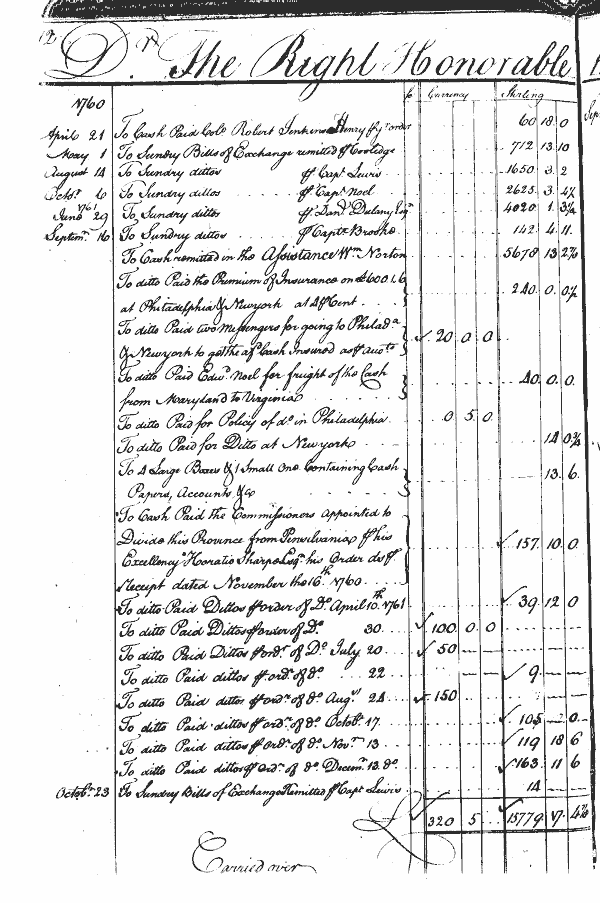 12
Dr. The Right Honorable
fo Currency Sterling
1760
April 21 To Cash Paid Colo Robert Jenkins Henry ⅌ Yr order 60 18 0
May 1 To Sundry Bills of Exchange remitted ⅌ Cooledge 712 13 10
August 14 To Sundry dittos ⅌ Capt Lewis 1650 3 2
Octobr 6 To Sundry dittos ⅌ Capt Noel 2625 3 4½
1761
June 29 To Sundry dittos ⅌ Danl Dulany Esqr 4020 1 3¼
Septemr 16 To Sundry dittos ⅌ Captn Brooke 142 4 11
To Cash remitted in the Assistance Wm Norton 5678 13 2¾
To ditto Paid the Premium of Insurance on £6001.6
at Philadelphia & New york at 4 ⅌ Cent 240 0 0½
To ditto Paid two Messengers for going to Philada
& New york to get the afd Cash Insured as ⅌ Accts 20 0 0
To ditto Paid Edwd Noel for freight of the Cash
from Maryland to Virginia 40 0 0
To ditto Paid for Policy of do in Philadelphia 0 5 0
To ditto Paid for Ditto at New york 14 0¾
To 4 Large Boxes & 1 Small One Containing Cash 13 6
Papers, Accounts &c
To Cash Paid the Commissioners appointed to
Divide this Province from Pensilvania ⅌ his
Excellency Horatio Sharpe Esqr his Order do ⅌ 157 10 0
Receipt dated November the 16th 1760
To ditto Paid Dittos ⅌ order of Do April 10th 1761 39 12 0
To ditto Paid Dittos ⅌ order of Do 30 100 0 0
To ditto Paid Dittos ⅌ ordr of Do July 20 50 — —
To ditto Paid dittos ⅌ ordr of do 22 9 — —
To ditto Paid dittos ⅌ ordr of do Augst 24 150 — —
To ditto Paid dittos ⅌ ordr of do Octobr 17 105 — 0
To ditto Paid dittos ⅌ ordr of do Novr 13 119 18 6
To ditto Paid dittos ⅌ Ordr of do Decemr 13 do 163 11 6
Octobr 23 To Sundry Bills of Exchange Remitted ⅌ Capt Lewis 14 — —
£ 320 5 15779 17 4¾
Carried over